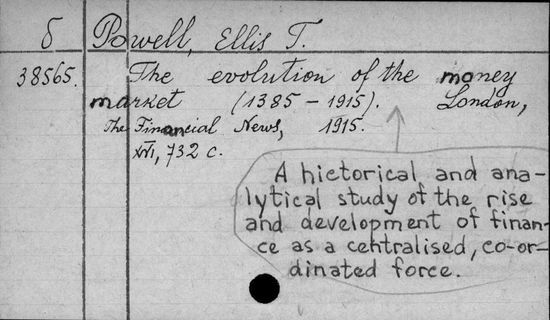 б Powell, Ellis T.
38565. The evolution of the money
market (1385 – 1915). London,
The Financial News, 1915.
XVI, 732 c.
A hictorical and ana-
lytical study of the rise
and development of finan-
ce as a centralised, co-or-
dinated force.